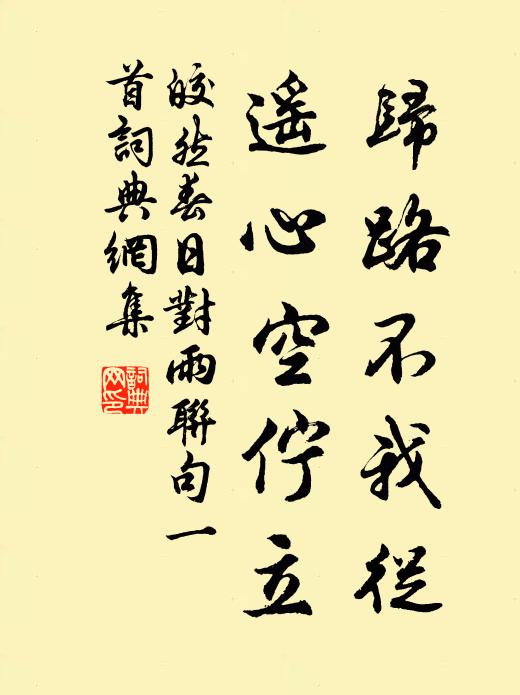 歸路不我從
遥心空佇立
皎然春日對雨聯句一
首詞典網集
詞典
网印